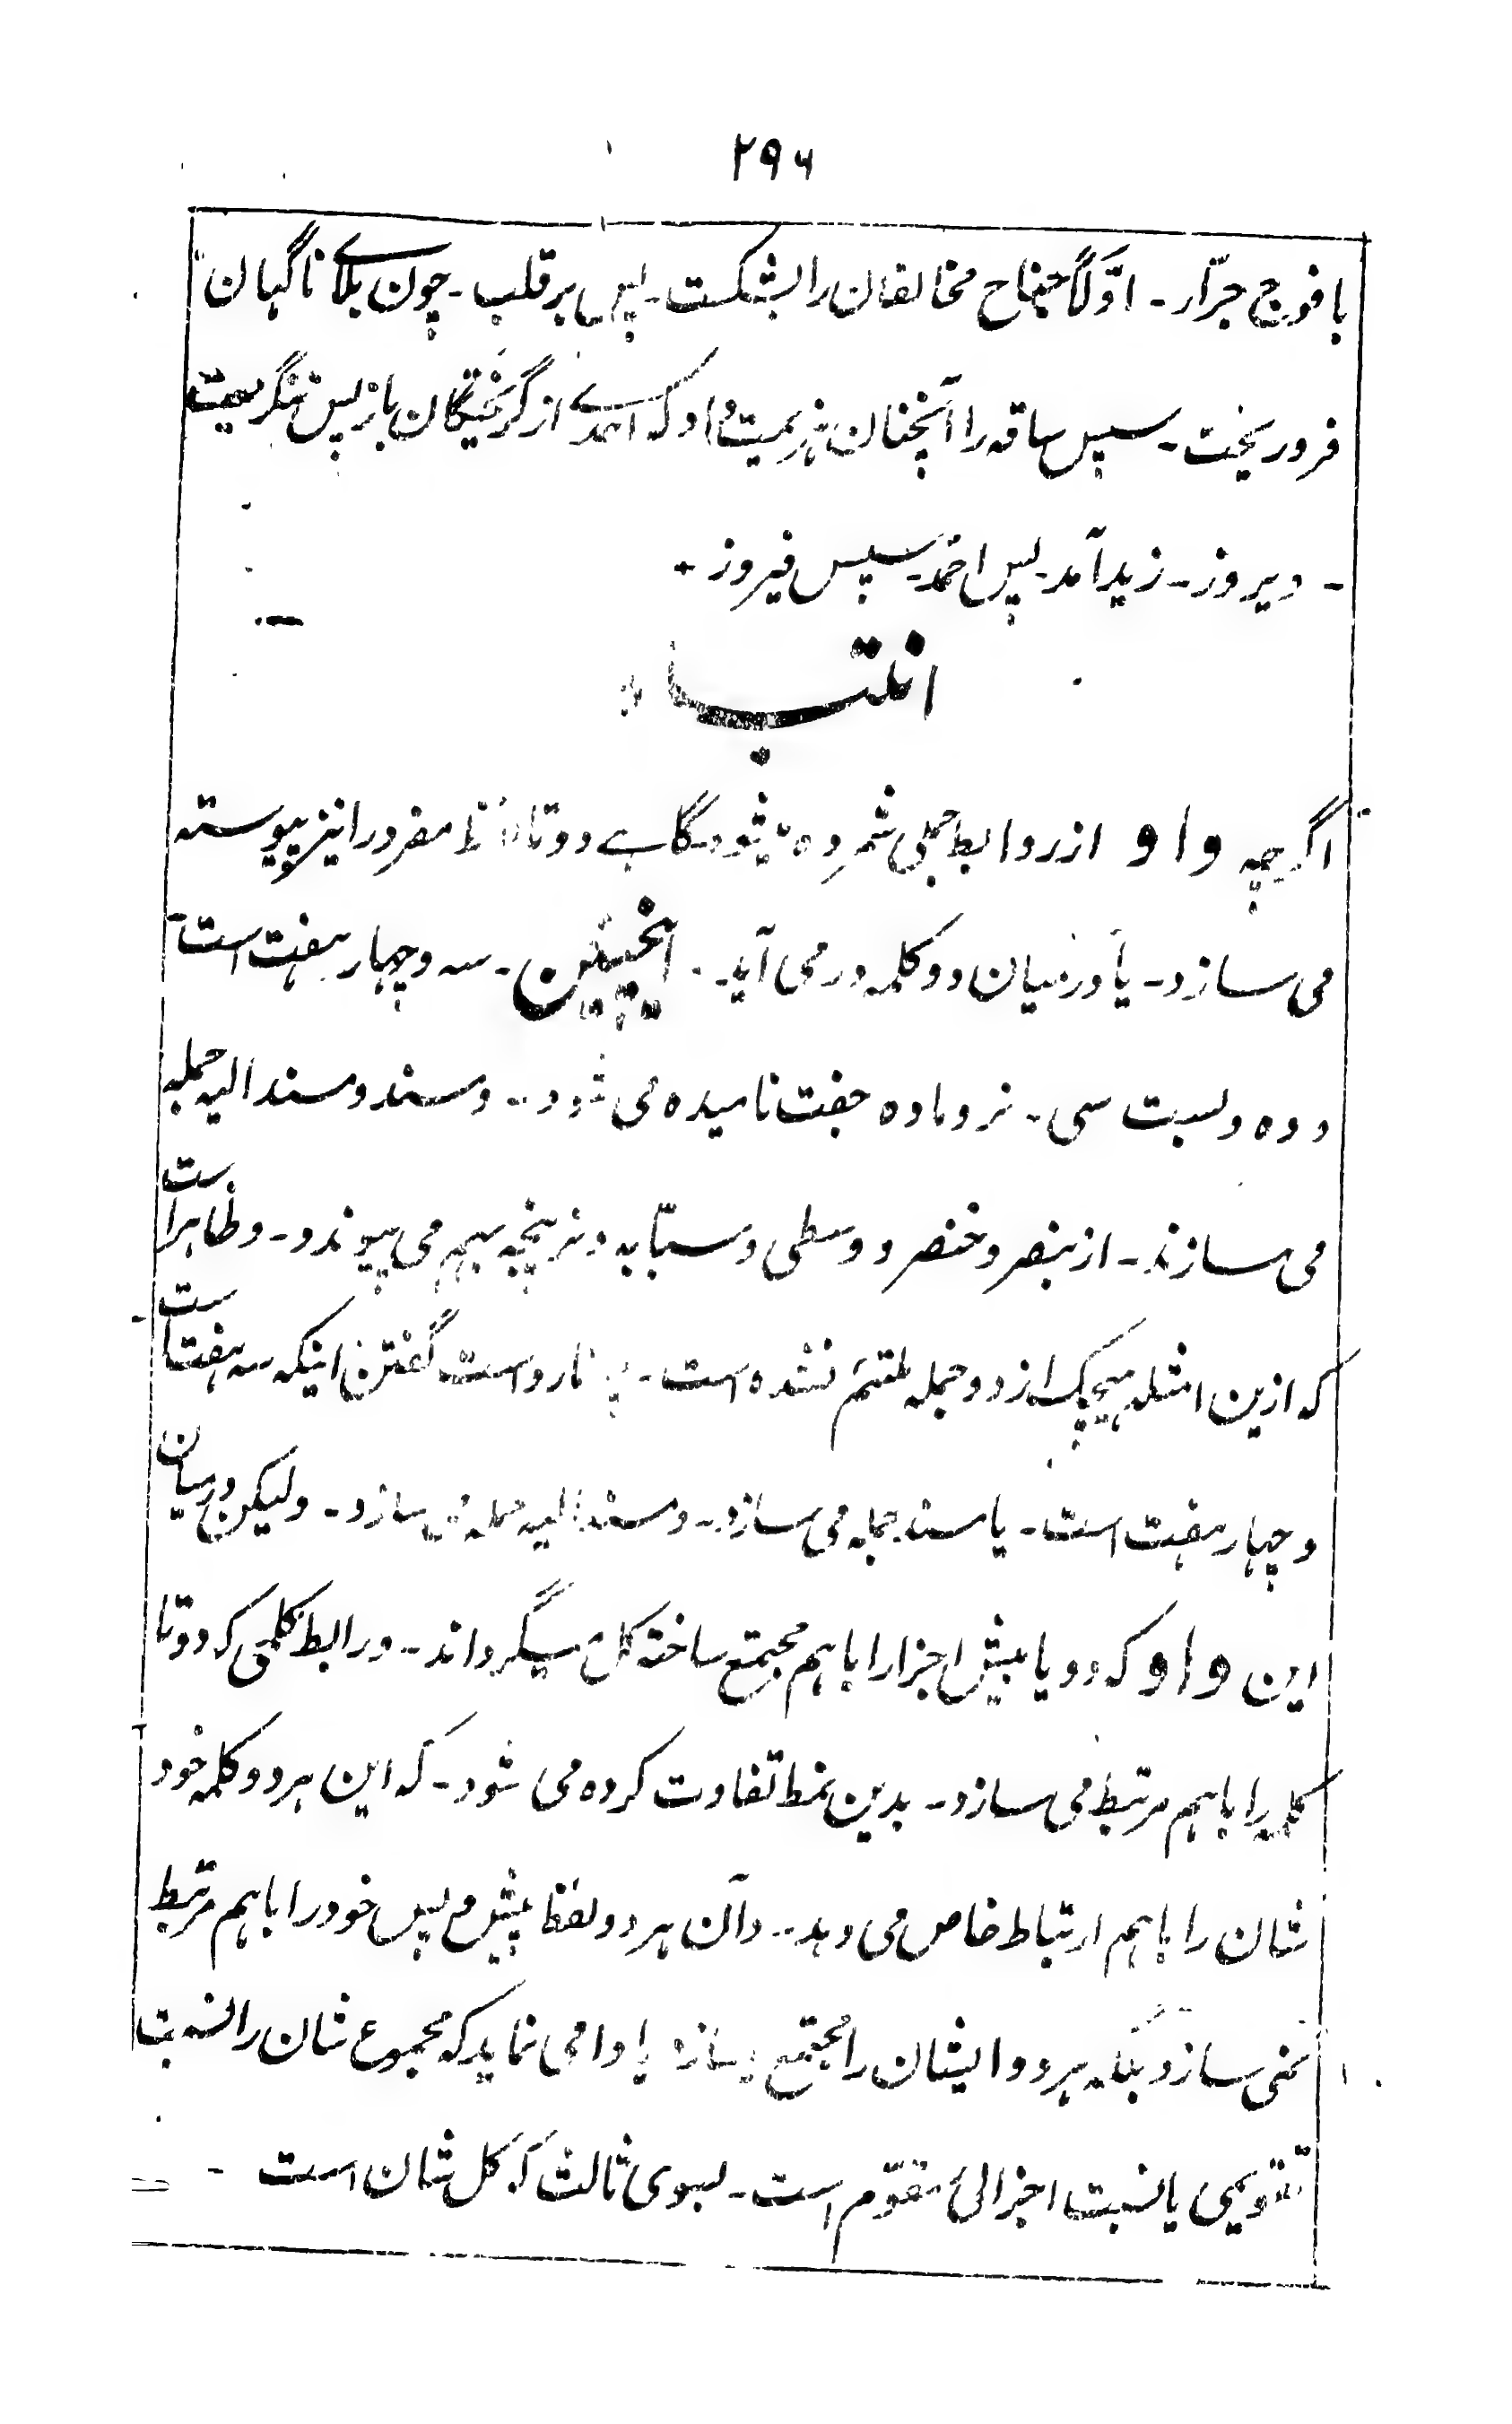 ۲۹۶
با فوج جرّار - اوّلاً جناح مخالفان را بشکست - پس بر قلب - چون بلاے ناگہان
فرو ریخت - سپس ساقہ را آنچنان ہزیمت داد کہ احدے از گریختگان باز پس ننگریست
- دیروز - زید آمد - پس احمد - سپس فیروز -
انتباہ
اگرچہ واو از روابط جملی شمردہ میشود - گاہے دو تا مفرد را نیز پیوستہ
می سازد - یا درمیان دو کلمہ در می آید - اینچنین - سہ و چہار ہفت است
و دہ و بست سی - نر و مادہ جفت نامیدہ می شود - و مسند و مسند الیہ جملہ
می سازند - از بنصر و خنصر و وسطی و سبّابہ و نر پنجہ بہم می پیوندد - و ظاہر است
کہ ازین امثلہ ہیچیک از دو جملہ ملتئم نشدہ است - نارواست گفتن اینکہ سہ ہفت است
و چہار ہفت است - یا مسند جملہ می سازد - و مسند الیہ جملہ می سازد - ولیکن درمیان
این واو کہ دو یا بیش اجزا را باہم مجتمع ساختہ کل میگرداند - و رابط کلمی کہ دو تا
کلمہ را باہم مرتبط می سازد - بدین نمط تفاوت کردہ می شود - کہ این ہر دو کلمہ خود
شان را باہم ارتباط خاص می دہد - و آن ہر دو لفظ پیش و پس خود را باہم مرتبط
نمی سازد بلکہ ہر دو ایشان را مجتمع ادا می نماید کہ مجموع شان را نسبت
تقویمی یا نسبت اجزائی مقوّم است - بسوی ثالث کہ کل شان است -